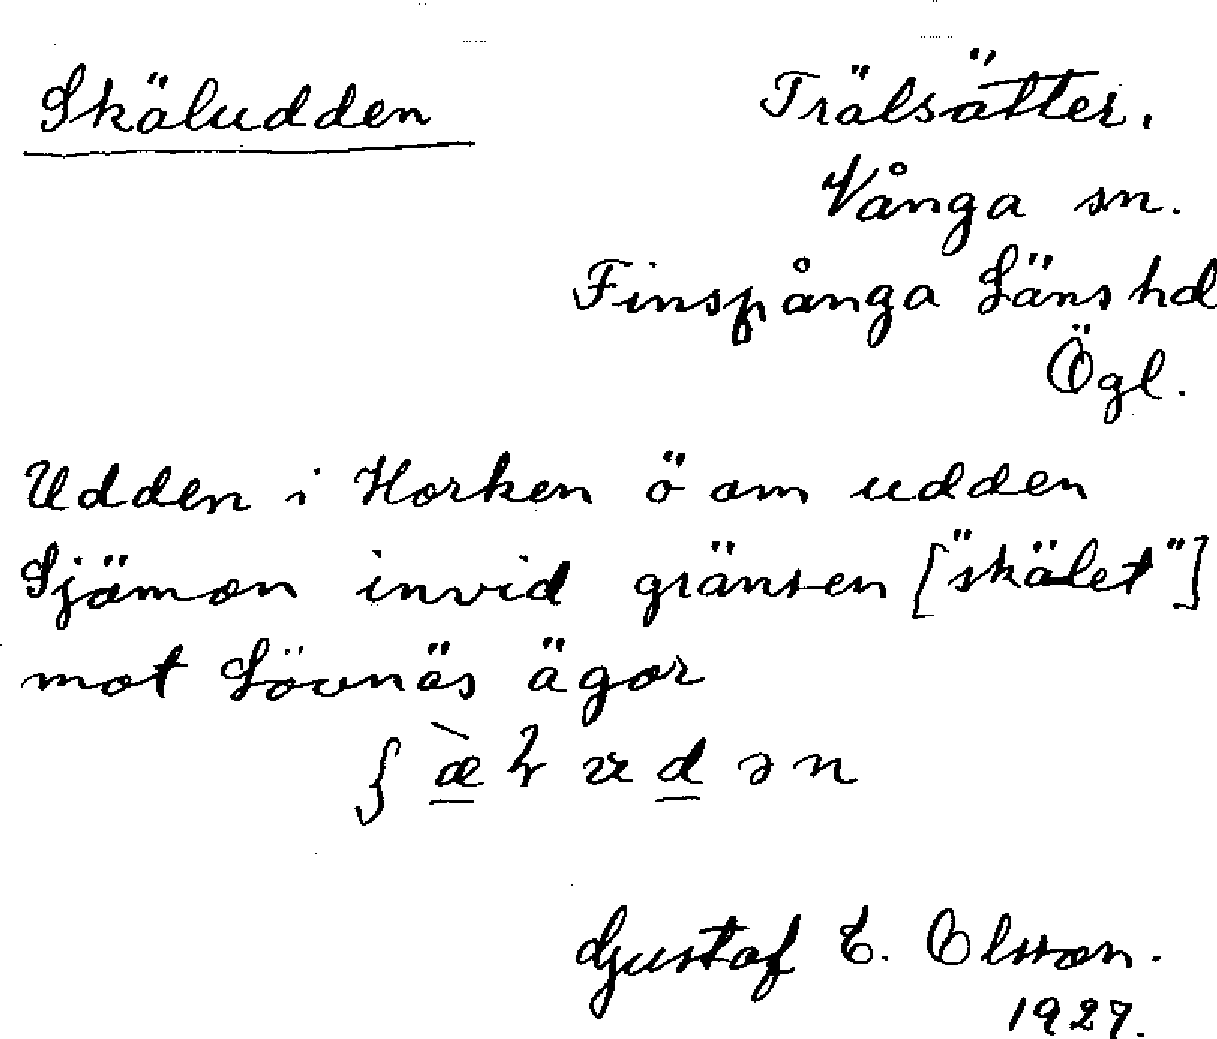 Skäludden
Trälsätter.
Vånga sn.
Finspånga Läns hd
Ögl.
Udden i Horken ö om udden
Sjömon invid gränsen ["skälet"]
mot Lövnäs ägor
Gustaf E. Olsson.
1927.